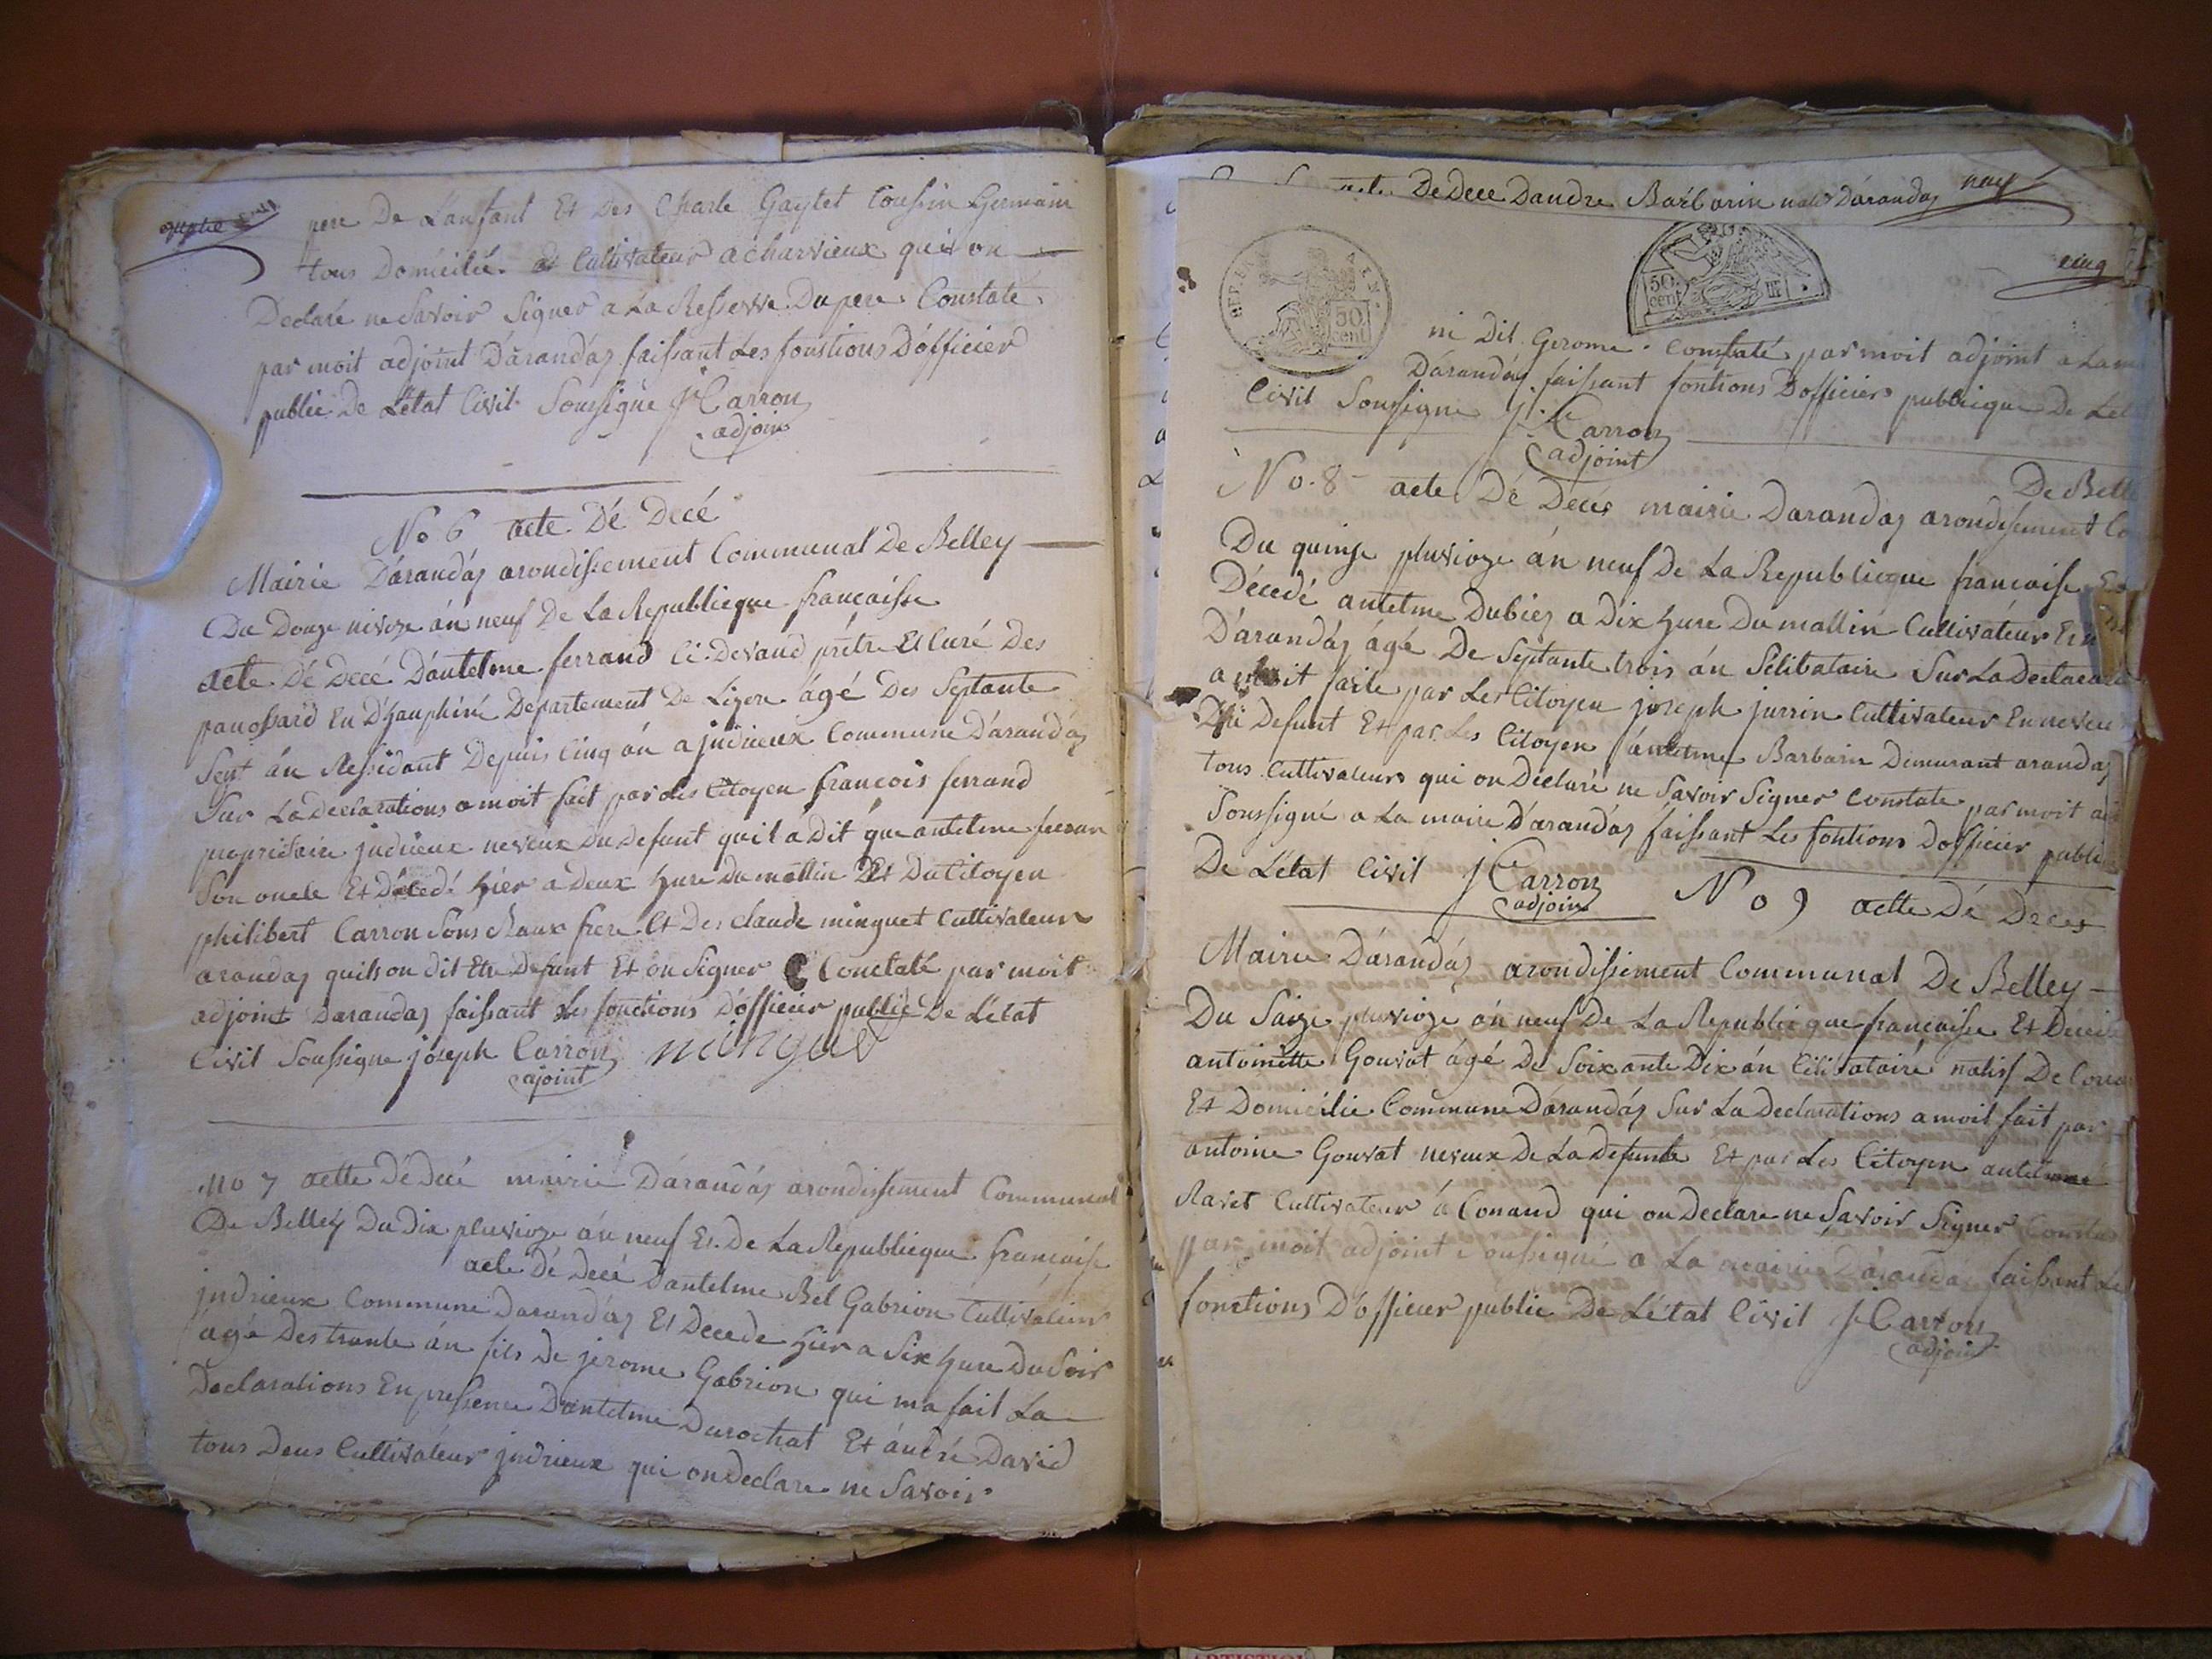 pere De L'anfant Et Des Charle Gaytet Coussin Germain
tous Domicilié et Cultivateur a charvieux qui on
Déclaré ne Savoir Signer a La Resserve Du pere Constaté
par moit adjoint D'arandas faissant Les fonstions D'officier
public De L'état Civil Soussigné J Carron
adjoin
No 6 acte Dé Decé
Mairie D'arandas arondissement Communal De Belley
Du Douze nivoze án neuf De La Republicque francaisse
acte Dé Decé D'antelme ferrand Ci-Devand prêtre Et Curé Des
panossard En D'hauphiné Departement De Lizere ágé Des Septante
Sept án Ressidant Depuis Cinq án a judrieux Commune D'arandas
Sur La declarations a moit fait par des Citoyen francois ferrand
propriétaire judrieux neveux Du defunt quil a Dit que antelme ferran
Son oncle Et Décedé hier a Deux hure du mattin Et Du Citoyen
philibert Carron Sons Baux frere Et Des claude minguet Cultivateur
arandas quils on dit Etre Defunt Et on Signer Constaté par moit
adjoint Darandas faissant Les fonctions D'officier public De L'état
Civil Soussigne joseph Carron minguet
ajoint
No 7 actte Dé Decé mairie D'arandás arondissement Communal
De Belley Du Dix pluvioze án neuf Et De La Republicque francaise
acte Dé Decé D'antelme Bel Gabrion Cultivateur
judrieux Commune Darandas Et Decede Hier a Six hure Du Soir
ágé Des trante án fils De jerome Gabrion qui ma fait La
Declarations En pressence D'antelme Durochat Et ándré David
tous Deus Cultivateur judrieux qui on Declare ne Savoir
De Dece Dandre Barbarin natif Darandas
cinq
REP. 50 cent
50 cent
ni Dit Gerome Constaté par moit adjoint a La
Darandás faissant fontions D'officier publicque De Let
Civil Soussigne J Carron
adjoint
De Belle
No. 8 acte Dé Deces mairie Darandas arondissement Co
Du quinze pluvioze án neuf De La Republicque francaise
Décedé antelme Dubiez a Dix hure Du mattin Cultivateur
D'arandás ágé De Septante trois án Sélibataire Sur La Declara
a moit faite par Les Citoyen joseph jurrin Cultivateur En neveu
Du Defunt Et par Les Citoyen antelme Barbarin Demurant arandas
tous Cultivateurs qui on Déclaré ne Savoir Signer Constate par moit
Soussigné a La mairie D'arandás faissant Les fontions D'officier public
De L'état Civil J Carron
adjoin
No 9 actte Dé Deces
Mairie D'arandás arondissement Communal De Belley
Du Saize pluvioze án neuf De La Republicque francaisse Et Décéd
antoinette Gouvat ágé De Soixante Dix án Célibatairé natif De Cona
Et Domicilie Commune D'arandás Sur La Declarations a moit fait par
antoine Gouvat neveux De La Defunte Et par Les Citoyen antelme
Ravet Cultivateur á Conand qui on Declare ne Savoir Signer Consta
par moit adjoint Soussigné a La mairie D'arandás faissant Le
fonctions D'officier public De L'état Civil J Carron
adjoin